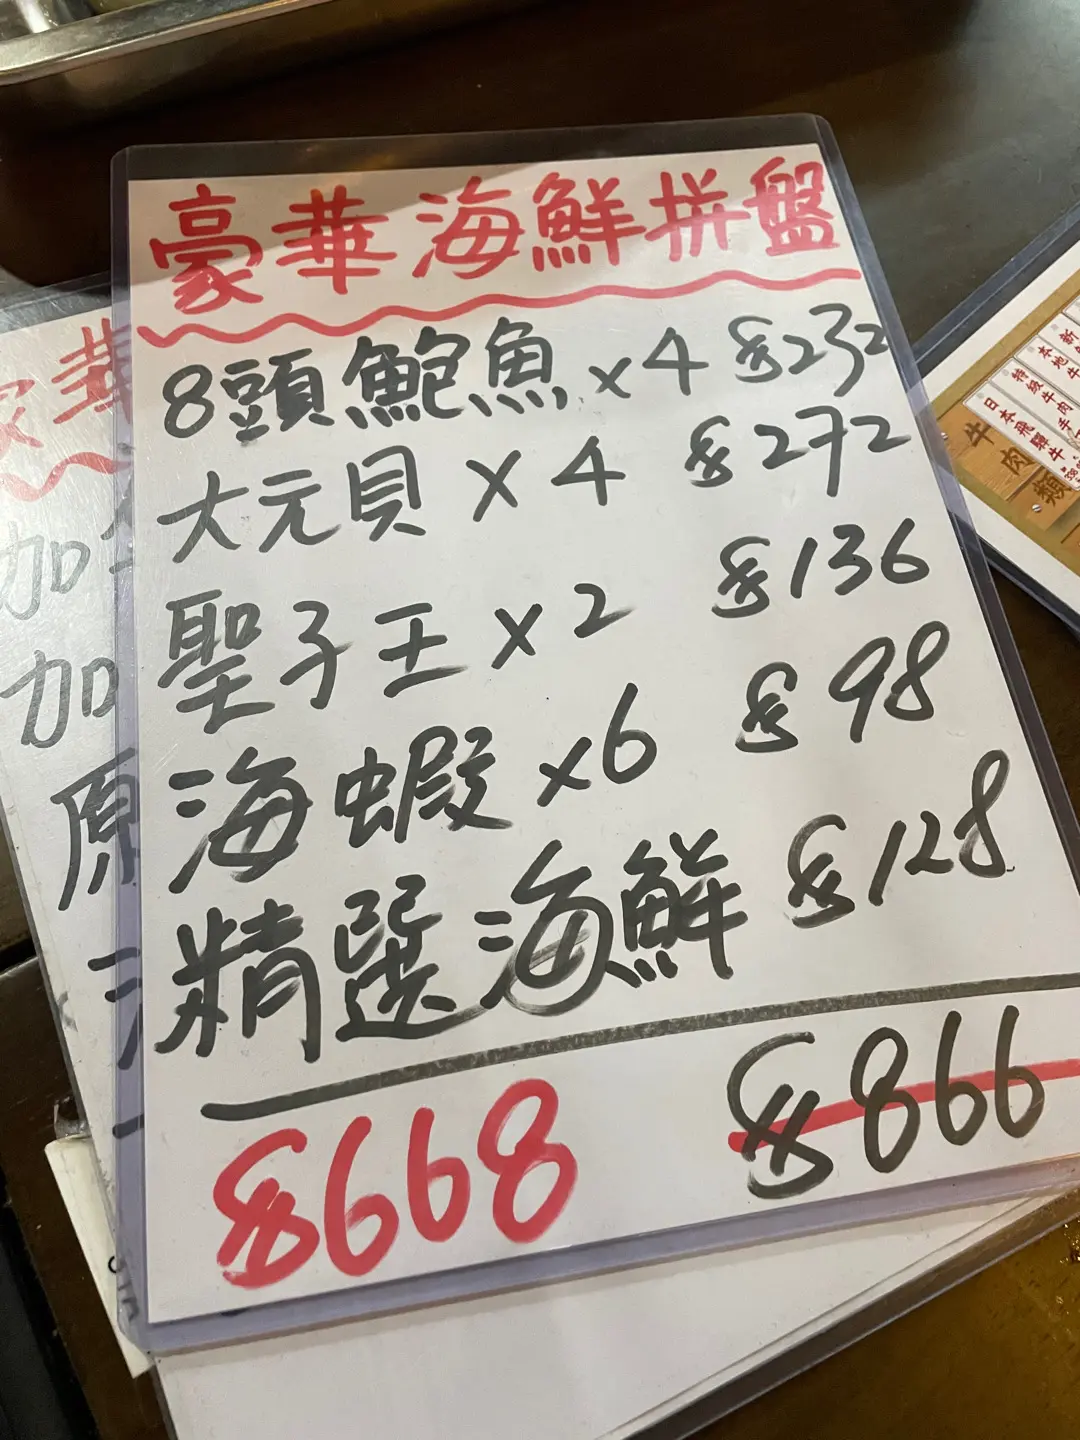 豪華海鮮拼盤
8頭鮑魚 x4 $232
大元貝 x 4 $272
聖子王 x2 $136
海蝦 x6 $98
精選海鮮 $128
$668 $866
華
加
加
原
新
本地牛
特級牛肉
日本飛驒牛
牛肉類